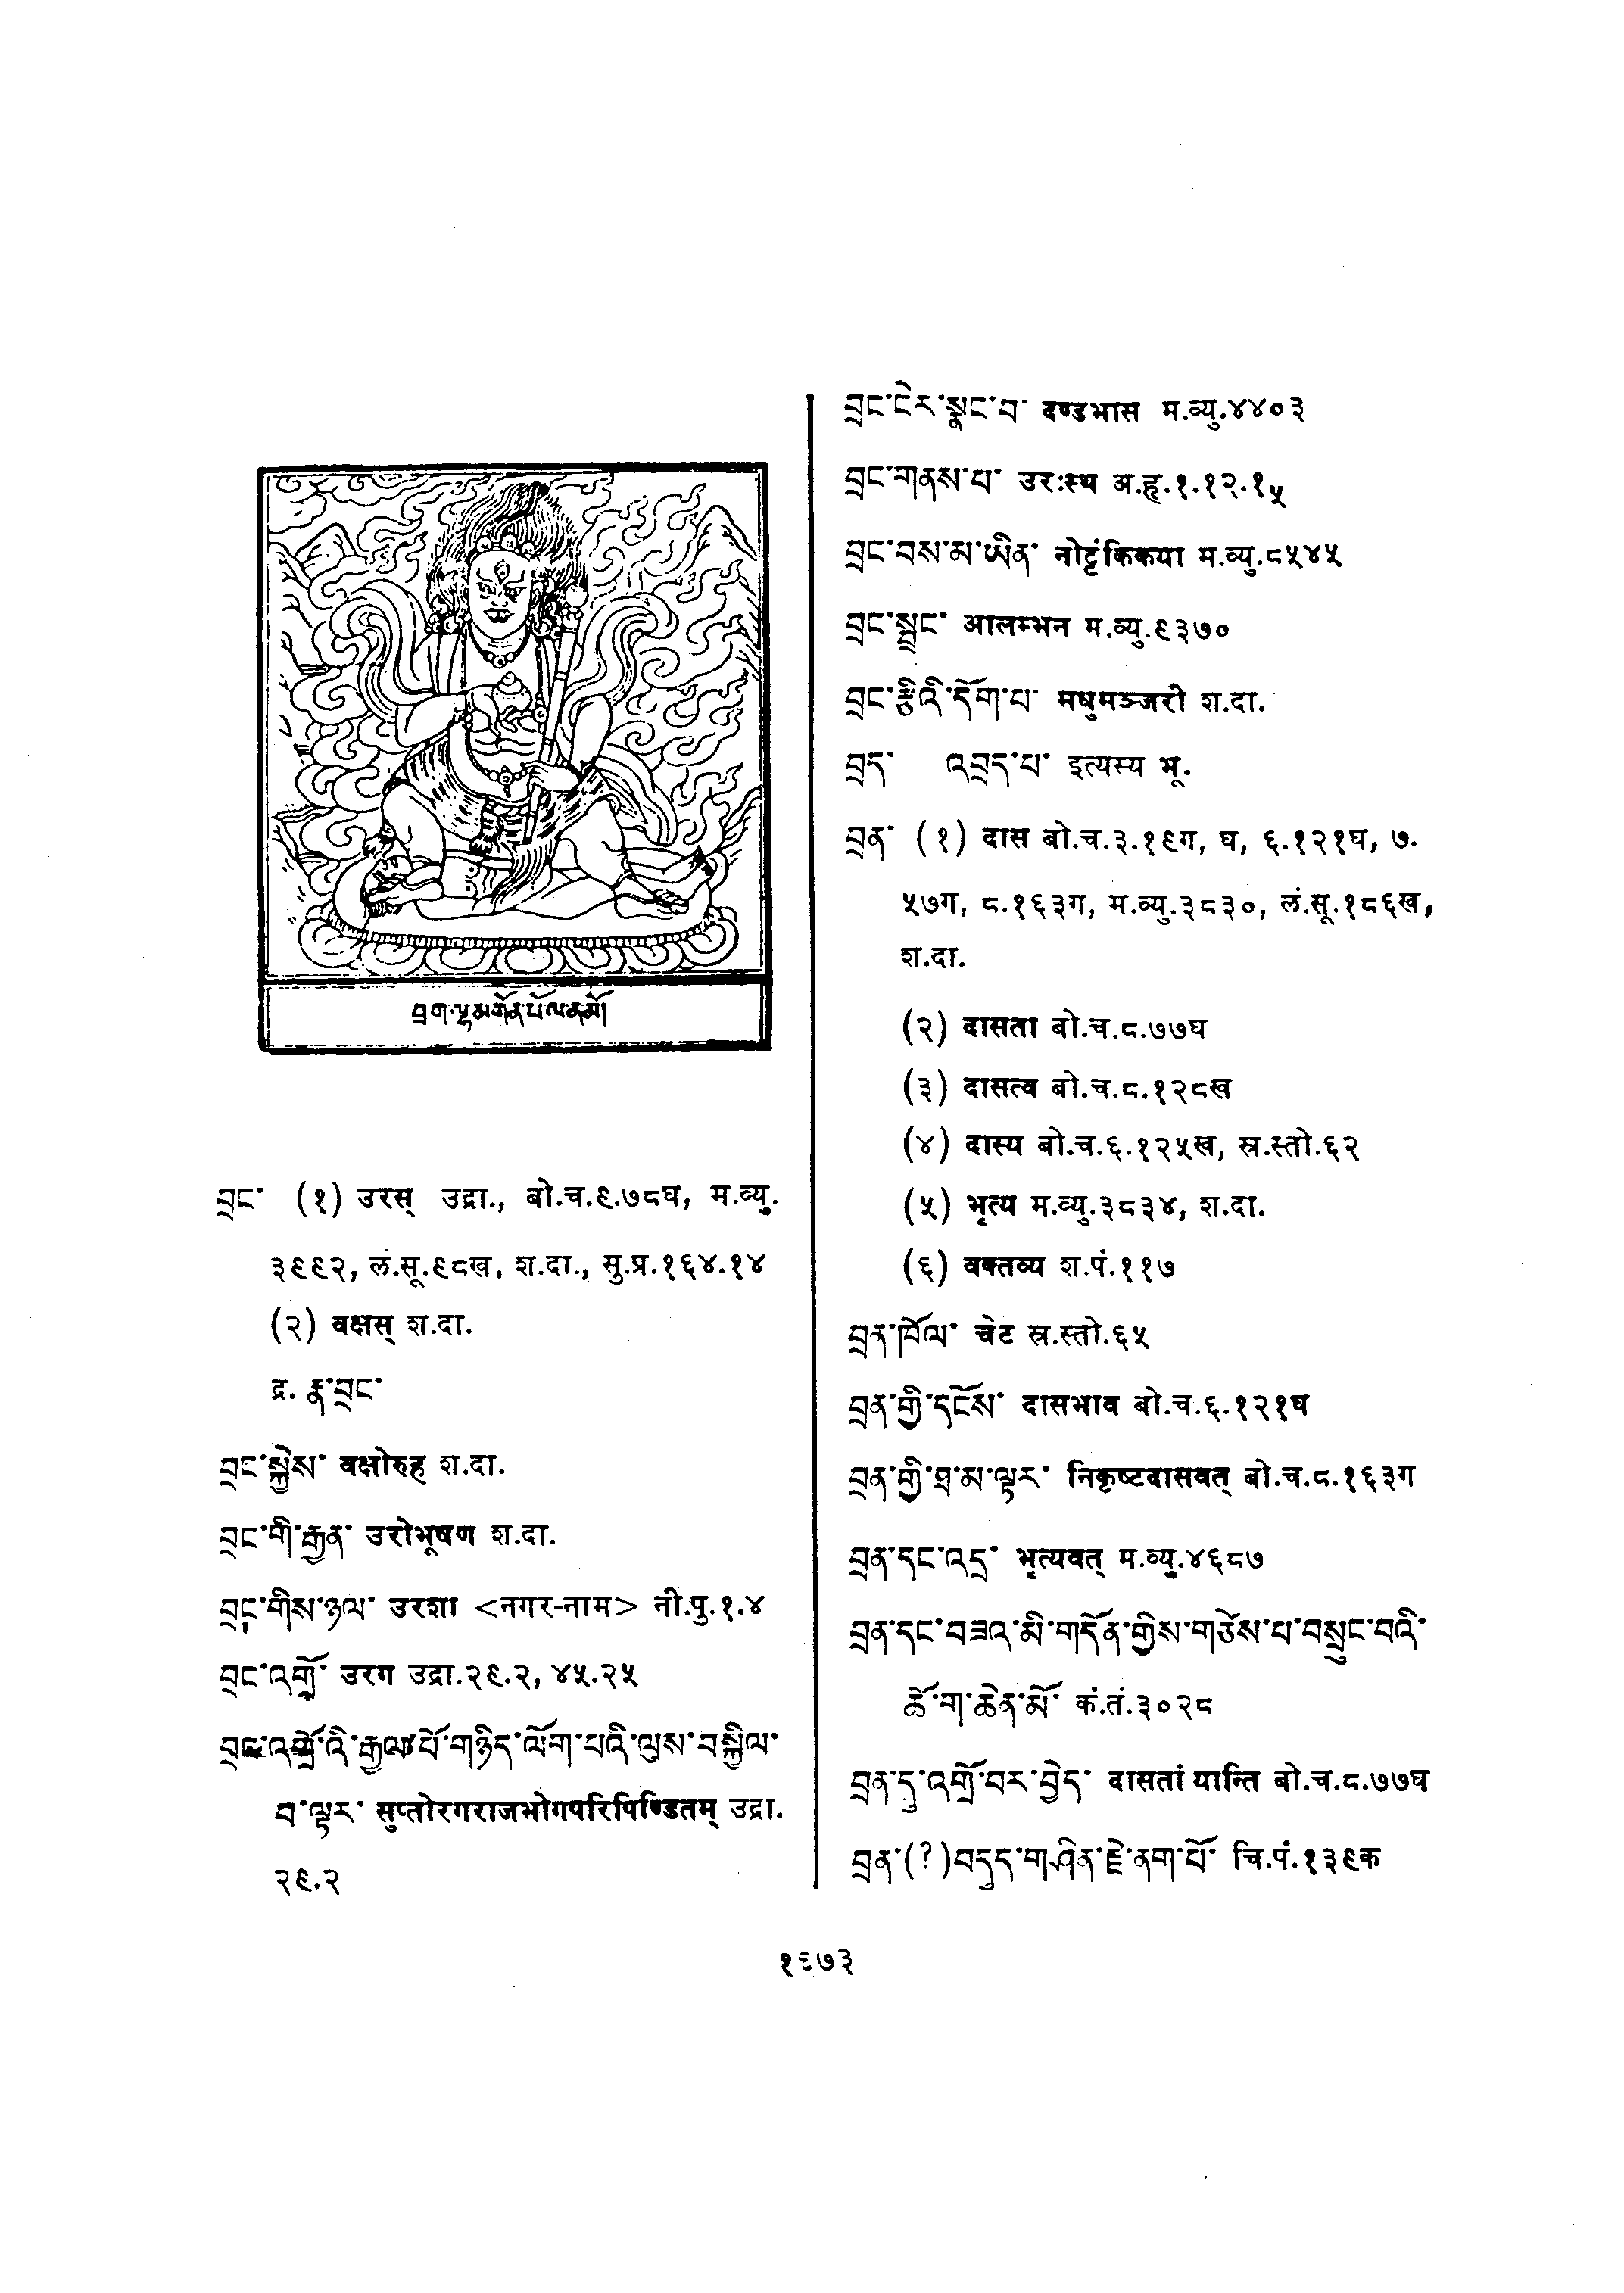 བྲག་ལྷ་མགོན་པོ་ལ་ན་མོ།
བྲང་ (१) उरस् उद्रा., बो.च.९.७८घ, म.व्यु.
३९९२, लं.सू.९८ख, श.दा., सु.प्र.१६४.१४
(२) वक्षस् श.दा.
द्र. རྣ་བྲང་
བྲང་སྐྱེས་ वक्षोरुह श.दा.
བྲང་གི་རྒྱན་ उरोभूषण श.दा.
བྲང་གིས་ཉལ་ उरशा <नगर-नाम> नी.पु.१.४
བྲང་འགྲོ་ उरग उद्रा.२९.२, ४५.२५
བྲང་འགྲོའི་རྒྱལ་པོ་གཉིད་ལོག་པའི་ལུས་བསྐྱིལ་
བ་ལྟར་ सुप्तोरगराजभोगपरिपिण्डितम् उद्रा.
२९.२
བྲང་ངེར་སྣང་བ་ दण्डभास म.व्यु.४४०३
བྲང་གནས་པ་ उरःस्थ अ.हृ.१.१२.१५
བྲང་བས་མ་ཡིན་ नोट्टंकिकया म.व्यु.८५४५
བྲང་སྦྲང་ आलम्भन म.व्यु.९३७०
བྲང་རྩིའི་དོག་པ་ मधुमञ्जरी श.दा.
བྲད་ འབྲད་པ་ इत्यस्य भू.
བྲན་ (१) दास बो.च.३.१९ग, घ, ६.१२१घ, ७.
५७ग, ८.१६३ग, म.व्यु.३८३०, लं.सू.१८६ख,
श.दा.
(२) दासता बो.च.८.७७घ
(३) दासत्व बो.च.८.१२८ख
(४) दास्य बो.च.६.१२५ख, स्र.स्तो.६२
(५) भृत्य म.व्यु.३८३४, श.दा.
(६) वक्तव्य श.पं.११७
བྲན་ཁོལ་ चेट स्र.स्तो.६५
བྲན་གྱི་དངོས་ दासभाव बो.च.६.१२१घ
བྲན་གྱི་ཐ་མ་ལྟར་ निकृष्टदासवत् बो.च.८.१६३ग
བྲན་དང་འདྲ་ भृत्यवत् म.व्यु.४६८७
བྲན་དང་བཟའ་མི་གདོན་གྱིས་གཙེས་པ་བསྲུང་བའི་
ཆོ་ག་ཆེན་མོ་ कं.तं.३०२८
བྲན་དུ་འགྲོ་བར་བྱེད་ दासतां यान्ति बो.च.८.७७घ
བྲན་(?)བདུད་གཤིན་རྗེ་ནག་པོ་ चि.पं.१३९क
१९७३